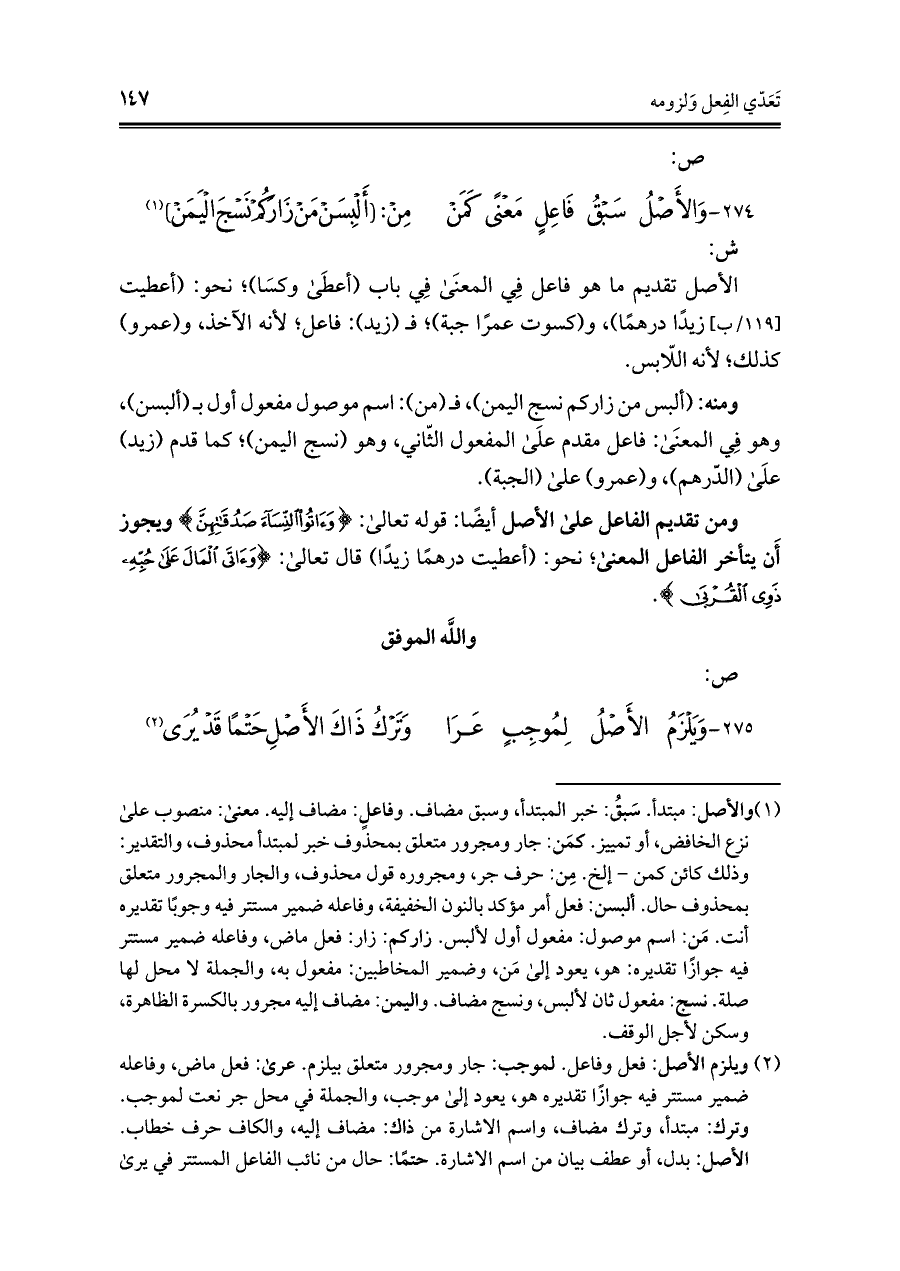 تَعَدّي الفِعل وَلزومه ١٤٧
ص:
٢٧٤-وَالأَصْلُ سَبْقُ فَاعِلٍ مَعْنًى كَمَنْ مِنْ: [أَلْبِسَنْ مَنْ زَارَكُمْ نَسْجَ الْيَمَنْ](١)
ش:
الأصل تقديم ما هو فاعل فِي المعنَىٰ فِي باب (أعطَىٰ وكسَا)؛ نحو: (أعطيت
[١١٩/ ب] زيدًا درهمًا)، و(كسوت عمرًا جبة)؛ فـ (زيد): فاعل؛ لأنه الآخذ، و(عمرو)
كذلك؛ لأنه اللّابس.
ومنه: (ألبس من زاركم نسج اليمن)، فـ(من): اسم موصول مفعول أول بـ(ألبسن)،
وهو فِي المعنَىٰ: فاعل مقدم علَىٰ المفعول الثّاني، وهو (نسج اليمن)؛ كما قدم (زيد)
علَىٰ (الدّرهم)، و(عمرو) علىٰ (الجبة).
ومن تقديم الفاعل علىٰ الأصل أيضًا: قوله تعالىٰ: ﴿وَءَاتُوا۟ ٱلنِّسَآءَ صَدُقَـٰتِهِنَّ﴾ ويجوز
أَن يتأخر الفاعل المعنىٰ؛ نحو: (أعطيت درهمًا زيدًا) قال تعالىٰ: ﴿وَءَاتَى ٱلْمَالَ عَلَىٰ حُبِّهِۦ
ذَوِى ٱلْقُرْبَىٰ﴾.
واللَّه الموفق
ص:
٢٧٥-وَيَلْزَمُ الأَصْلُ لِمُوجِبٍ عَـرَا وَتَرْكُ ذَاكَ الأَصْلِ حَتْمًا قَدْ يُرَى(٢)
(١)والأصل: مبتدأ. سَبقُ: خبر المبتدأ، وسبق مضاف. وفاعلٍ: مضاف إليه. معنىٰ: منصوب علىٰ
نزع الخافض، أو تمييز. كمَن: جار ومجرور متعلق بمحذوف خبر لمبتدأ محذوف، والتقدير:
وذلك كائن كمن – إلخ. مِن: حرف جر، ومجروره قول محذوف، والجار والمجرور متعلق
بمحذوف حال. ألبسن: فعل أمر مؤكد بالنون الخفيفة، وفاعله ضمير مستتر فيه وجوبًا تقديره
أنت. مَن: اسم موصول: مفعول أول لألبس. زاركم: زار: فعل ماض، وفاعله ضمير مستتر
فيه جوازًا تقديره: هو، يعود إلىٰ مَن، وضمير المخاطبين: مفعول به، والجملة لا محل لها
صلة. نسج: مفعول ثان لألبس، ونسج مضاف. واليمن: مضاف إليه مجرور بالكسرة الظاهرة،
وسكن لأجل الوقف.
(٢) ويلزم الأصل: فعل وفاعل. لموجب: جار ومجرور متعلق بيلزم. عرىٰ: فعل ماض، وفاعله
ضمير مستتر فيه جوازًا تقديره هو، يعود إلىٰ موجب، والجملة في محل جر نعت لموجب.
وترك: مبتدأ، وترك مضاف، واسم الاشارة من ذاك: مضاف إليه، والكاف حرف خطاب.
الأصل: بدل، أو عطف بيان من اسم الاشارة. حتمًا: حال من نائب الفاعل المستتر في يرىٰ